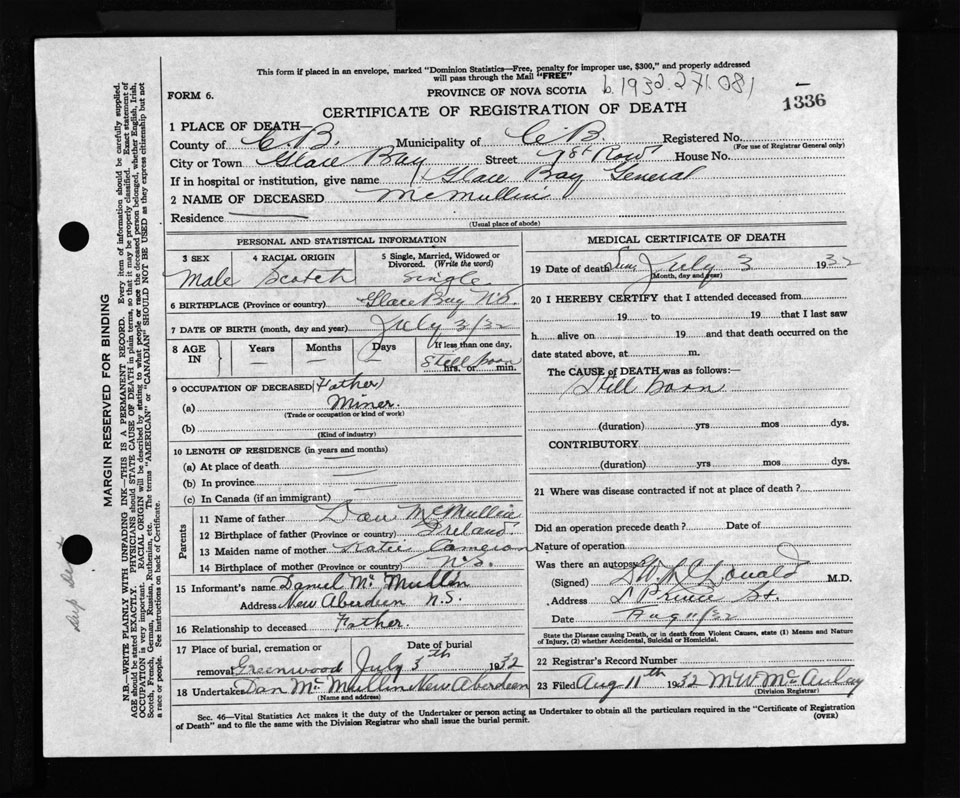 This form if placed in an envelope, marked "Dominion Statistics—Free, penalty for improper use, $300," and properly addressed
will pass through the Mail "FREE"
FORM 6.
PROVINCE OF NOVA SCOTIA
b.1932.271.081
1336
CERTIFICATE OF REGISTRATION OF DEATH
1 PLACE OF DEATH—
County of C.B. Municipality of C.B. Registered No.
(For use of Registrar General only)
City or Town Glace Bay Street Row House No.
If in hospital or institution, give name Glace Bay General
2 NAME OF DECEASED McMullin
Residence —
(Usual place of abode)
PERSONAL AND STATISTICAL INFORMATION
3 SEX
Male
4 RACIAL ORIGIN
Scotch
5 Single, Married, Widowed or
Divorced. (Write the word)
Single
6 BIRTHPLACE (Province or country) Glace Bay N.S.
7 DATE OF BIRTH (month, day and year) July 3/32
8 AGE IN
Years
Months
Days
If less than one day,
Still born
hrs. or min.
9 OCCUPATION OF DECEASED (Father)
(a) Miner.
(Trade or occupation or kind of work)
(b)
(Kind of industry)
10 LENGTH OF RESIDENCE (in years and months)
(a) At place of death
(b) In province
(c) In Canada (if an immigrant)
Parents
11 Name of father Dan McMullin
12 Birthplace of father (Province or country) Ireland.
13 Maiden name of mother Katie Cameron
14 Birthplace of mother (Province or country) N.S.
15 Informant's name Daniel Mc Mullin
Address New Aberdeen N.S.
16 Relationship to deceased Father.
17 Place of burial, cremation or
removal Greenwood
Date of burial
July 3th 1932
18 Undertaker Dan Mc Mullin New Aberdeen
(Name and address)
MEDICAL CERTIFICATE OF DEATH
19 Date of death July 3 1932
(Month, day and year)
20 I HEREBY CERTIFY that I attended deceased from
19 to 19 that I last saw
h alive on 19 and that death occurred on the
date stated above, at m.
The CAUSE of DEATH was as follows:—
Still born
(duration) yrs mos dys.
CONTRIBUTORY
(duration) yrs mos dys.
21 Where was disease contracted if not at place of death?
Did an operation precede death? Date of
Nature of operation
Was there an autopsy
(Signed) M.D.
Address Prince St.
Date Aug 11/32
State the Disease causing Death, or in death from Violent Causes, state (1) Means and Nature
of Injury, (2) whether Accidental, Suicidal or Homicidal.
22 Registrar's Record Number
23 Filed Aug 11th 1932 M W McAulay
(Division Registrar)
Sec. 46—Vital Statistics Act makes it the duty of the Undertaker or person acting as Undertaker to obtain all the particulars required in the "Certificate of Registration
of Death" and to file the same with the Division Registrar who shall issue the burial permit.
(OVER)
MARGIN RESERVED FOR BINDING
N.B.—WRITE PLAINLY WITH UNFADING INK—THIS IS A PERMANENT RECORD. Every item of information should be carefully supplied.
AGE should be stated EXACTLY. PHYSICIANS should STATE CAUSE OF DEATH in plain terms, so that it may be properly classified. Exact statement of
OCCUPATION is very important. RACIAL ORIGIN will be described by stating to what people or race the deceased person belonged, whether English, Irish,
Scotch, French, German, Russian, Ruthenian, etc. The terms "AMERICAN" or "CANADIAN" SHOULD NOT BE USED as they express citizenship but not
a race or people. See instructions on back of Certificate.